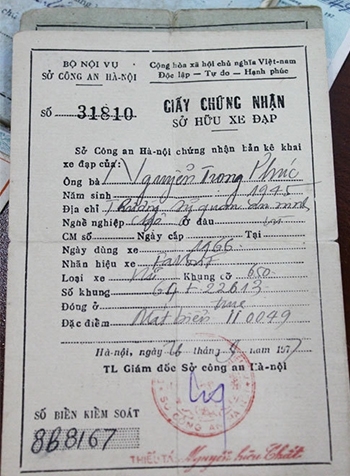 BỘ NỘI VỤ
SỞ CÔNG AN HÀ-NỘI
Cộng hòa xã hội chủ nghĩa Việt-nam
Độc lập - Tự do - Hạnh phúc
SỐ 31810
GIẤY CHỨNG NHẬN
SỞ HỮU XE ĐẠP
Sở Công an Hà-nội chứng nhận bản kê khai
xe đạp của:
Ông bà Nguyễn Trọng Phúc
Năm sinh 1945
Địa chỉ Trường sĩ quan
Nghề nghiệp Ở đâu
CM số Ngày cấp Tại
Ngày dùng xe 1966
Nhãn hiệu xe
Loại xe Nữ Khung cỡ 650
Số khung 22613
Đóng ở
Đặc điểm Mất biển 110049
Hà-nội, ngày 26 tháng năm 1977
TL Giám đốc Sở công an Hà-nội
SỐ BIỂN KIỂM SOÁT
868167
THIẾU TÁ Nguyễn Hữu Chất